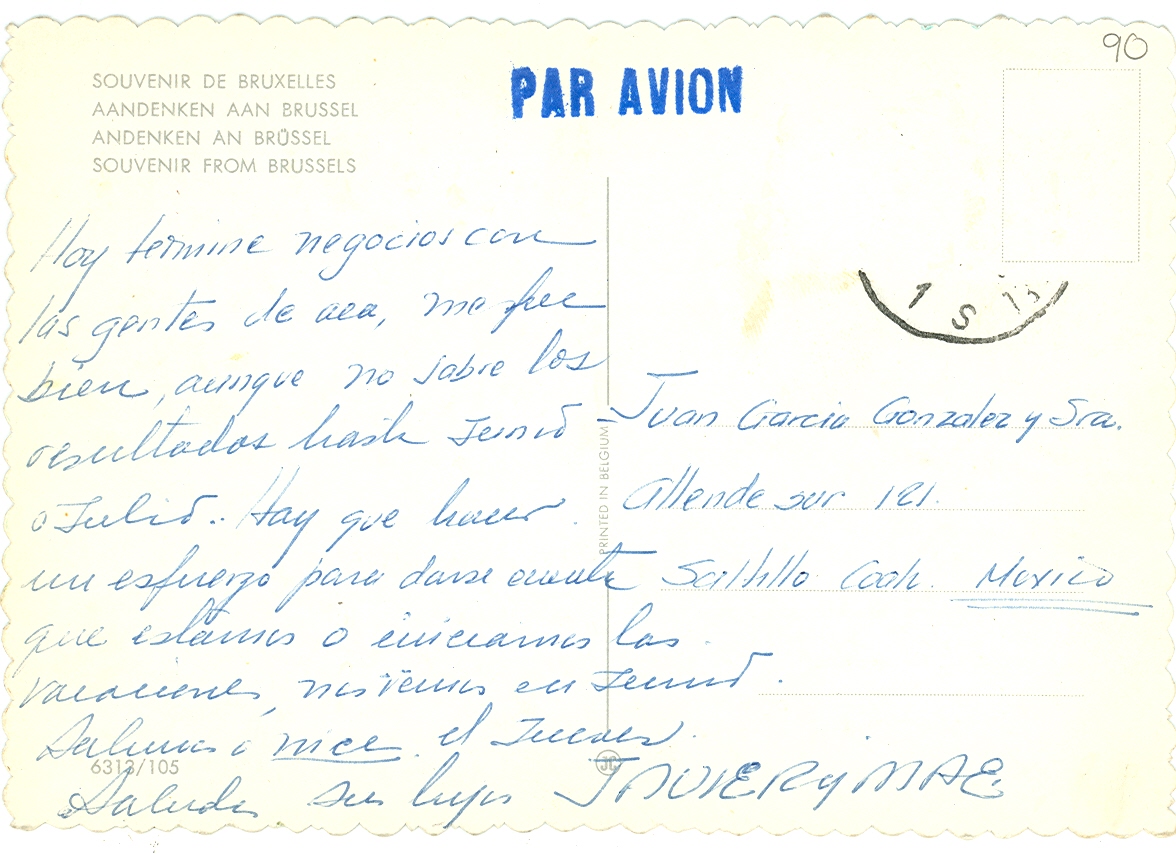 90
SOUVENIR DE BRUXELLES
AANDENKEN AAN BRUSSEL
ANDENKEN AN BRÜSSEL
SOUVENIR FROM BRUSSELS
PAR AVION
1 S
Hoy termine negocios con
las gentes de aca, me fue
bien, aunque no sabre los
resultados hasta Junio
o Julio.. Hay que hacer
un esfuerzo para darse cuenta
que estamos o iniciamos las
vacaciones, nos vemos en Junio.
Salimos a nice el Jueves.
Saludos sus hijos JAVIER y MAE
Juan Garcia Gonzalez y Sra.
Allende sur 121.
Saltillo Coah. Mexico
PRINTED IN BELGIUM
6313/105
JC